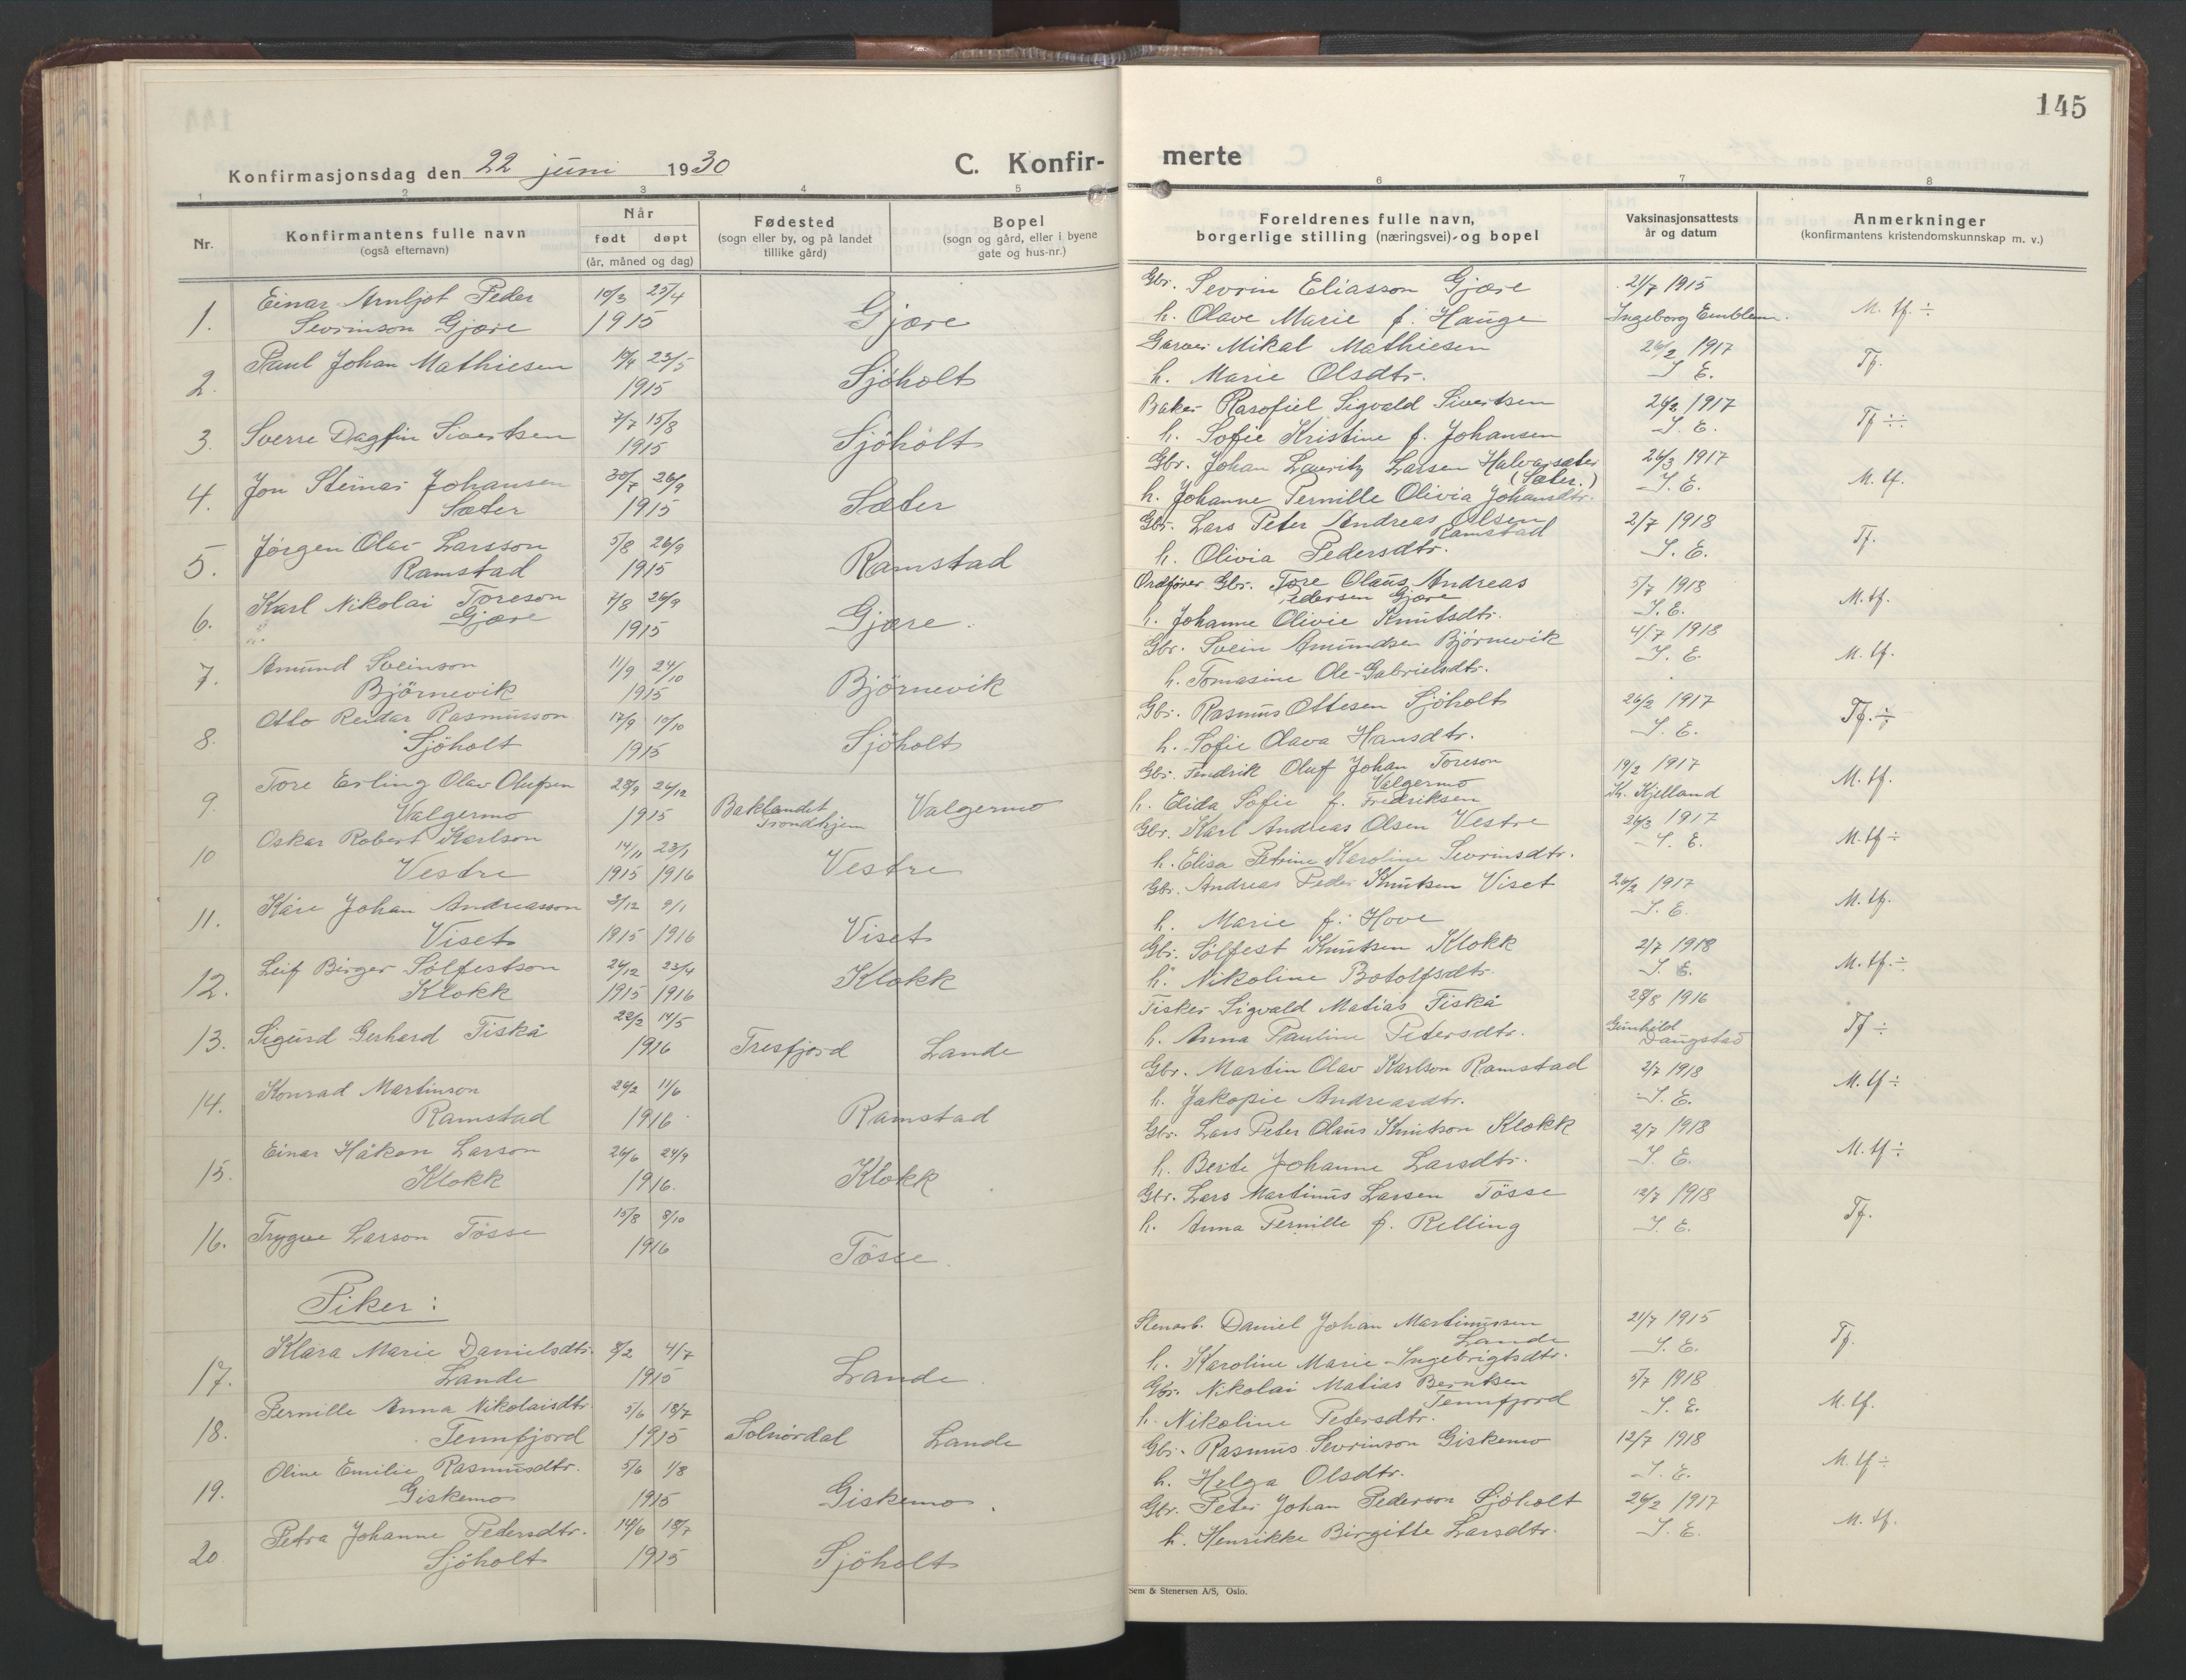 145
Konfirmasjonsdag den 22 juni 1930
C. Konfirmerte
1 2 3 4 5 6 7 8
Nr.
Konfirmantens fulle navn
(også efternavn)
Når
født døpt
(år, måned og dag)
Fødested
(sogn eller by, og på landet
tillike gård)
Bopel
(sogn og gård, eller i byene
gate og hus-nr.)
Foreldrenes fulle navn,
borgerlige stilling (næringsvei) og bopel
Vaksinasjonsattests
år og datum
Anmerkninger
(konfirmantens kristendomskunnskap m. v.)
1. Einar Arnljot Peder 10/3 25/4 Gjære Gbr. Sevrin Eliasson Gjære 21/7 1915 M. tf. ÷
Sevrinson Gjære 1915 h. Olave Marie f. Hauge Ingeborg Emblem.
2. Paul Johan Mathiesen 10/4 23/5 Sjöholt Garver Mikal Mathiesen 26/2 1917 Tf.
1915 h. Marie Olsdtr. I. E.
3. Sverre Dagfin Sivertsen 7/7 15/8 Sjöholt Baker Rasofiel Sigvald Sivertsen 26/2 1917 Tf ÷÷
1915 h. Sofie Kristine f. Johansen I. E.
4. Jon Steinar Johansen 30/7 26/9 Sæter Gbr. Johan Lauritz Larsen Halvarsæter 26/3 1917 M. tf.
Sæter 1915 (Sæter.)
h. Johanne Pernille Olivia Johansdtr. I. E.
5. Jørgen Olav Larsson 5/8 26/9 Ramstad Gbr. Lars Peter Andreas Olsen 2/7 1918 Tf.
Ramstad 1915 Ramstad
h. Olivia Pedersdtr. I. E.
6. Karl Nikolai Toreson 7/8 26/9 Gjære. Ordfører Gbr. Tore Olaus Andreas 5/7 1918 M. tf.
Gjære 1915 Pedersen Gjære
h. Johanne Olivie Knutsdtr. I. E.
7. Amund Sveinson 11/9 24/10 Björnevik Gbr. Svein Amundsen Björnevik 4/7 1918 M. tf.
Björnevik 1915 h. Tomasine Ole-Gabrielsdtr. I. E.
8. Otto Reidar Rasmusson 17/9 10/10 Sjöholt Gbr. Rasmus Ottesen Sjöholt 26/2 1917 Tf. ÷
Sjöholt 1915 h. Sofie Olava Hansdtr. I. E.
9 Tore Erling Olav Olufsen 28/9 26/12 Baklandet Valgermo Gbr. Fendrik Oluf Johan Toreson 19/2 1917 M. tf.
Valgermo 1915 Trondhjem Valgermo
h. Elida Sofie f. Fredriksen Kr. Kjelland
10 Oskar Robert Karlson 14/11 23/1 Vestre Gbr. Karl Andreas Olsen Vestre 26/3 1917 M. tf ÷
Vestre 1915 1916 h. Elisa Petrine Karoline Sevrinsdtr. I. E.
11. Kåre Johan Andreasson 3/12 9/1 Viset Gbr. Andreas Peder Knutsen Viset 26/2 1917 M. tf.
Viset 1915 1916 h. Marie f. Hove I. E.
12. Leif Birger Sölfestson 26/12 23/4 Klokk Gbr. Sölfest Knutsen Klokk 2/7 1918 M. tf. ÷
Klokk 1915 1916 h. Nikoline Botolfsdtr. I. E.
13. Sigurd Gerhard Fiskå 22/2 14/5 Tresfjord Lande Fisker Sigvald Matias Fiskå 28/8 1916 Tf ÷
1916 h. Anna Pauline Petersdtr. Gunhild Daugstad
14. Konrad Martinson 26/2 11/6 Ramstad Gbr. Martin Olav Karlson Ramstad 2/7 1918 M. tf ÷
Ramstad 1916 h. Jakopie Andreasdtr. I. E.
15. Einar Håkon Larson 26/6 24/9 Klokk Gbr. Lars Peter Olaus Knutson Klokk 2/7 1918 M. tf ÷
Klokk 1916. h. Berte Johanne Larsdtr. I. E.
16. Trygve Larson Tösse 15/8 8/10 Tösse. Gbr. Lars Martinus Larsen Tösse 12/7 1918 Tf.
1916 h. Anna Pernille f. Relling I. E.
Piker:
17. Klara Marie Danielsdtr. 8/2 4/7 Lande. Stenarb. Daniel Johan Martinussen 21/7 1915 Tf.
Lande 1915 Lande
h. Karoline Marie Ingebrigtsdtr. I. E.
18. Pernille Anna Nikolaisdtr. 5/6 18/7 Solnördal Lande Gbr. Nikolai Matias Berntsen 5/7 1918 M. tf.
Tennfjord 1915 Tennfjord
h. Nikoline Petersdtr. I. E.
19. Oline Emilie Rasmusdtr. 5/6 1/8 Giskemo. Gbr. Rasmus Sevrinson Giskemo 12/7 1918 M. tf ÷
Giskemo 1915 h. Helga Olsdtr. I. E.
20 Petra Johanne Pedersdtr. 14/6 18/7 Sjöholt Gbr. Peter Johan Pederson Sjöholt 26/2 1917 M. tf.
Sjöholt 1915 h. Henrikke Birgitte Larsdtr. I. E.
Sem & Stenersen A/S, Oslo.